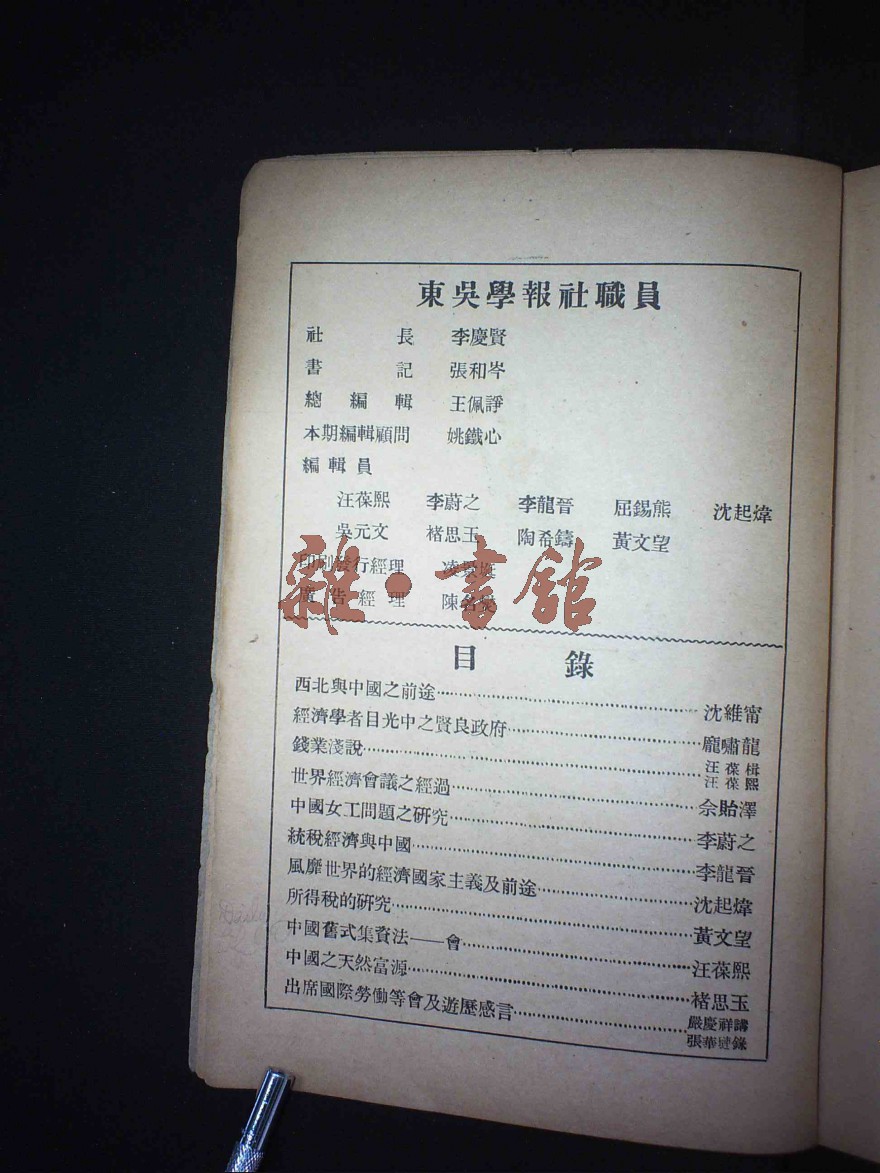 東吳學報社職員
社長 李慶賢
書記 張和岑
總編輯 王佩諍
本期編輯顧問 姚鐵心
編輯員
汪葆熙 李蔚之 李龍晉 屈錫熊 沈起煒
吳元文 褚思玉 陶希鑄 黃文望
印刷發行經理 凌
廣告經理 陳
雜·書館
目錄
西北與中國之前途 沈維甯
經濟學者目光中之賢良政府 龐嘯龍
錢業淺說 汪葆楫 汪葆熙
世界經濟會議之經過 佘貽澤
中國女工問題之研究 李蔚之
統稅經濟與中國 李龍晉
風靡世界的經濟國家主義及前途 沈起煒
所得稅的研究 黃文望
中國舊式集資法——會 汪葆熙
中國之天然富源 褚思玉
出席國際勞働等會及遊歷感言 嚴慶祥講 張華 錄